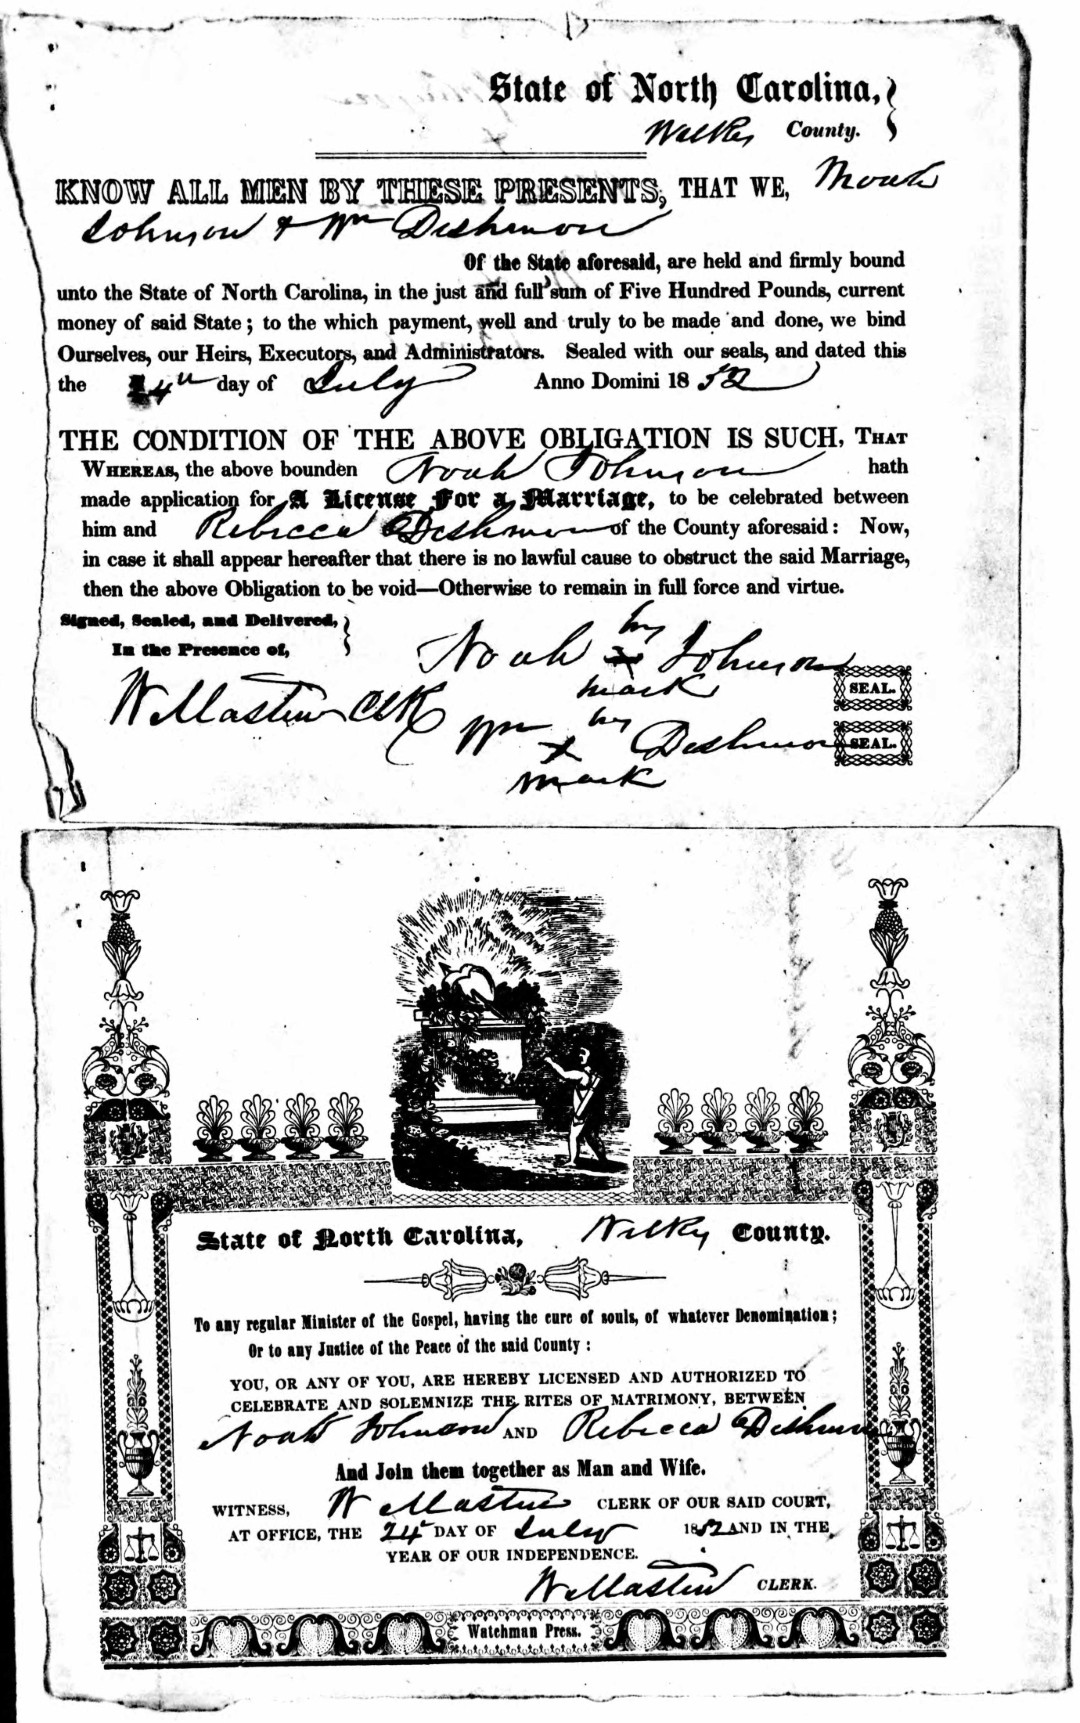 State of North Carolina,
Wilkes County.
KNOW ALL MEN BY THESE PRESENTS, THAT WE, Noah
Johnson & Wm Deshmon
Of the State aforesaid, are held and firmly bound
unto the State of North Carolina, in the just and full sum of Five Hundred Pounds, current
money of said State; to the which payment, well and truly to be made and done, we bind
Ourselves, our Heirs, Executors, and Administrators. Sealed with our seals, and dated this
the 24th day of July Anno Domini 1852
THE CONDITION OF THE ABOVE OBLIGATION IS SUCH, THAT
WHEREAS, the above bounden Noah Johnson hath
made application for A License For a Marriage, to be celebrated between
him and Rebecca Deshmon of the County aforesaid: Now,
in case it shall appear hereafter that there is no lawful cause to obstruct the said Marriage,
then the above Obligation to be void—Otherwise to remain in full force and virtue.
Signed, Sealed, and Delivered,
In the Presence of,
Noah his x mark Johnson SEAL.
W Mastin Clk
Wm his x mark Deshmon SEAL.
State of North Carolina, Wilkes County.
To any regular Minister of the Gospel, having the cure of souls, of whatever Denomination;
Or to any Justice of the Peace of the said County:
YOU, OR ANY OF YOU, ARE HEREBY LICENSED AND AUTHORIZED TO
CELEBRATE AND SOLEMNIZE THE RITES OF MATRIMONY, BETWEEN
Noah Johnson AND Rebecca Deshmon
And Join them together as Man and Wife.
WITNESS, W Mastin CLERK OF OUR SAID COURT,
AT OFFICE, THE 24 DAY OF July 1852 AND IN THE
YEAR OF OUR INDEPENDENCE.
W Mastin CLERK.
Watchman Press.